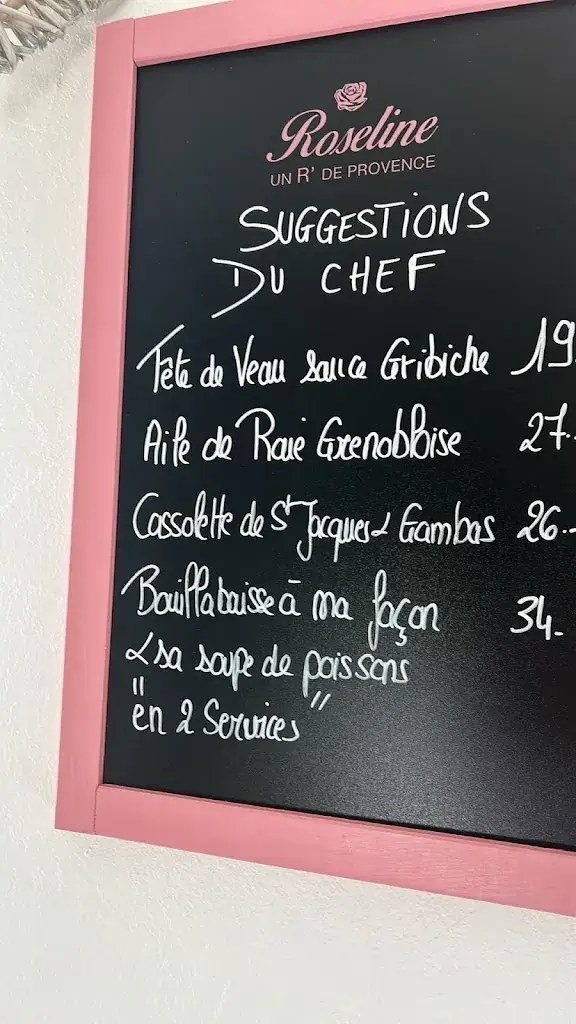 Roseline
UN R' DE PROVENCE
SUGGESTIONS
DU CHEF
Tête de Veau sauce Gribiche 19.
Aile de Raie Grenobloise 27.-
Cassolette de St Jacques & Gambas 26.-
Bouillabaisse à ma façon 34.
& sa soupe de poissons
"en 2 Services"